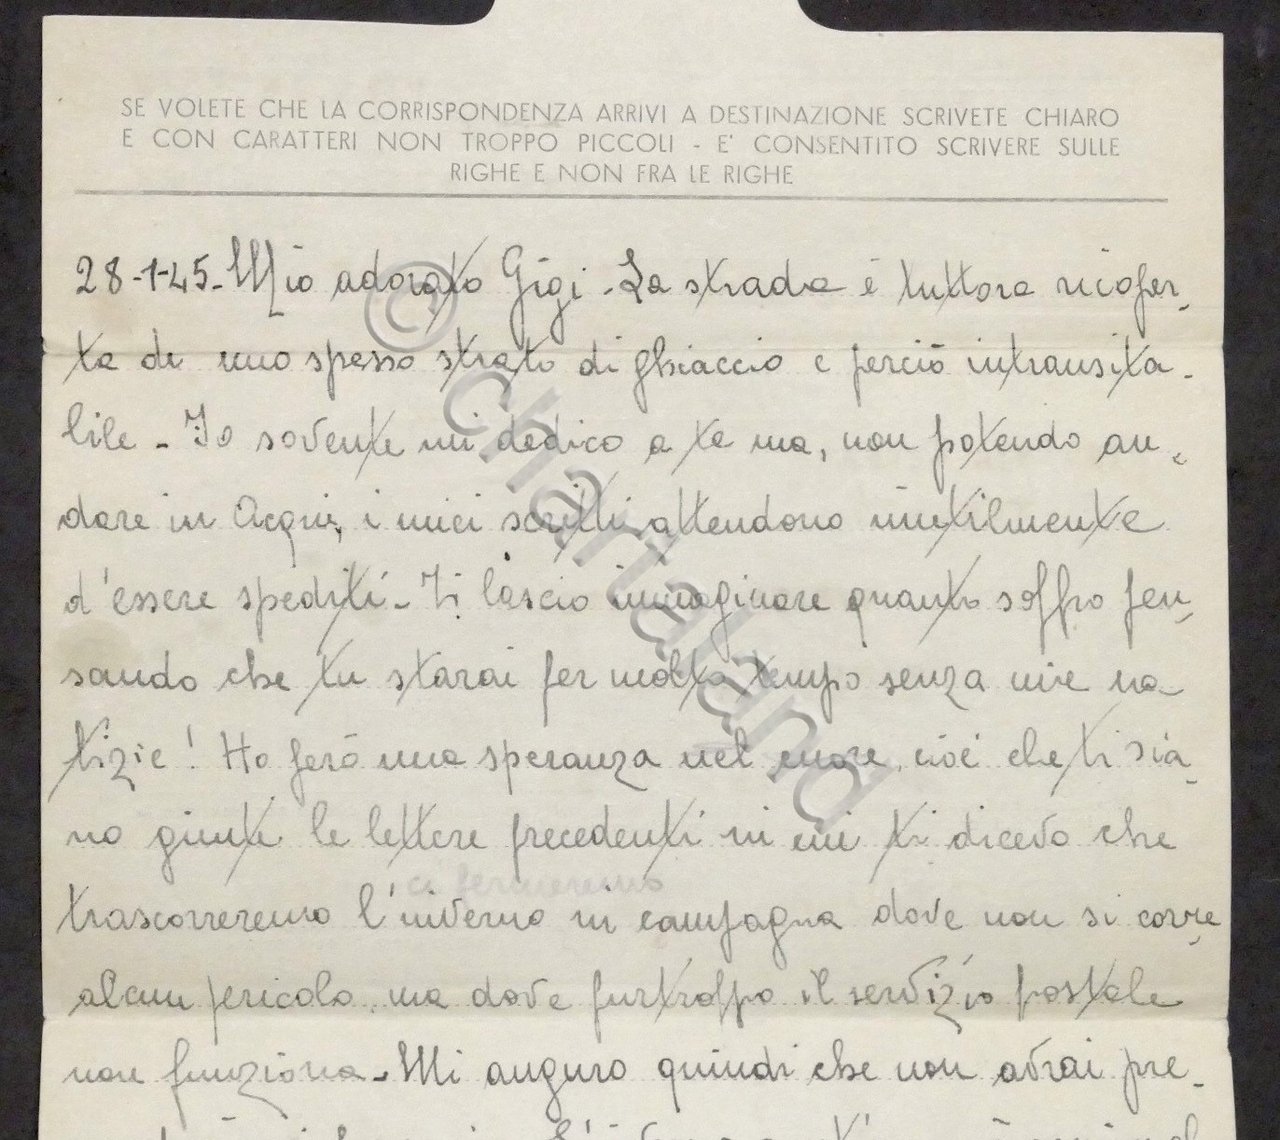 SE VOLETE CHE LA CORRISPONDENZA ARRIVI A DESTINAZIONE SCRIVETE CHIARO
E CON CARATTERI NON TROPPO PICCOLI - E' CONSENTITO SCRIVERE SULLE
RIGHE E NON FRA LE RIGHE
28-1-45. Mio adorato Gigi. La strada è tuttora ricoper-
ta di uno spesso strato di ghiaccio e perciò intransita-
bile - Io sovente mi dedico a te ma, non potendo an-
dare in Acqui, i miei scritti attendono inutilmente
d'essere spediti - Ti lascio immaginare quanto soffro pen-
sando che tu starai per molto tempo senza mie no
tizie! Ho però una speranza nel cuore, cioè che ti sia-
no giunte le lettere precedenti in cui ti dicevo che
ci fermeremo
trascorreremo l'inverno in campagna dove non si corre
alcun pericolo, ma dove purtroppo il servizio postale
non funziona - Mi auguro quindi che non avrai pre-
© chartaland